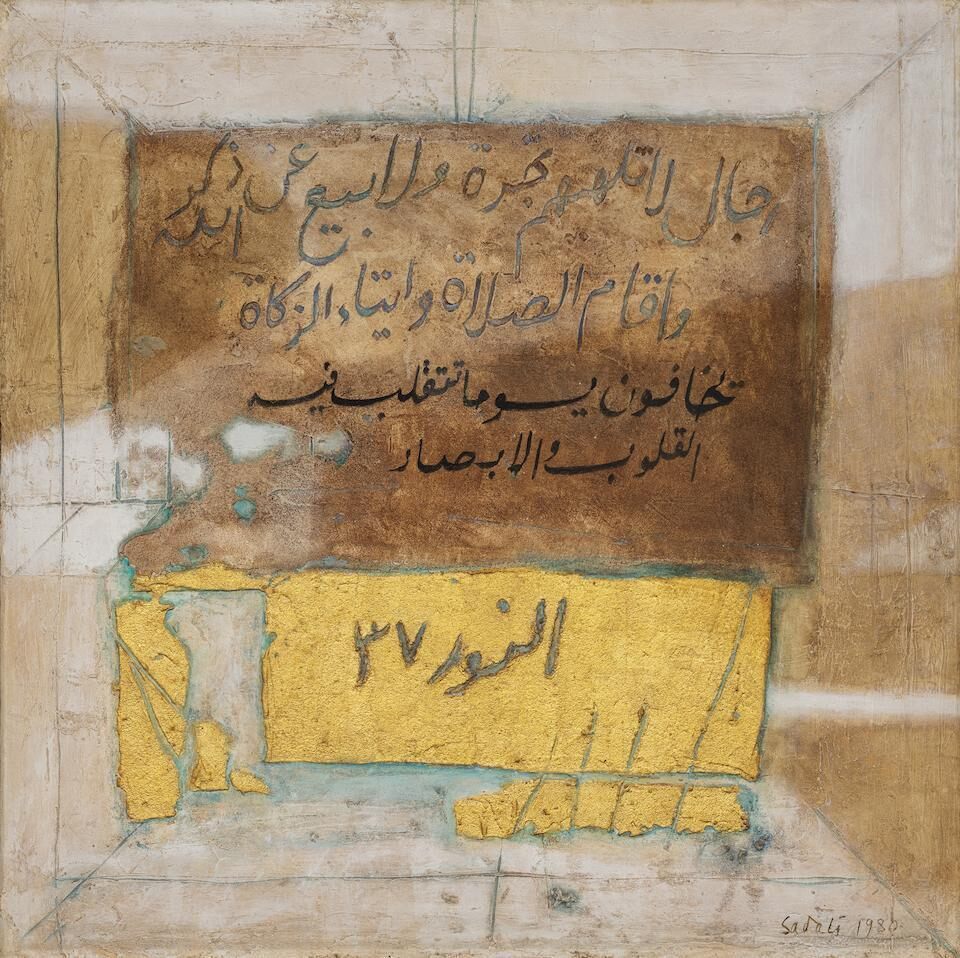 رجال لا تلهيهم تجرة ولا بيع عن ذكر الله
واقام الصلاة وايتاء الزكاة
يخافون يوما تتقلب فيه
القلوب والابصار
النور ٣٧
Sadali 1980